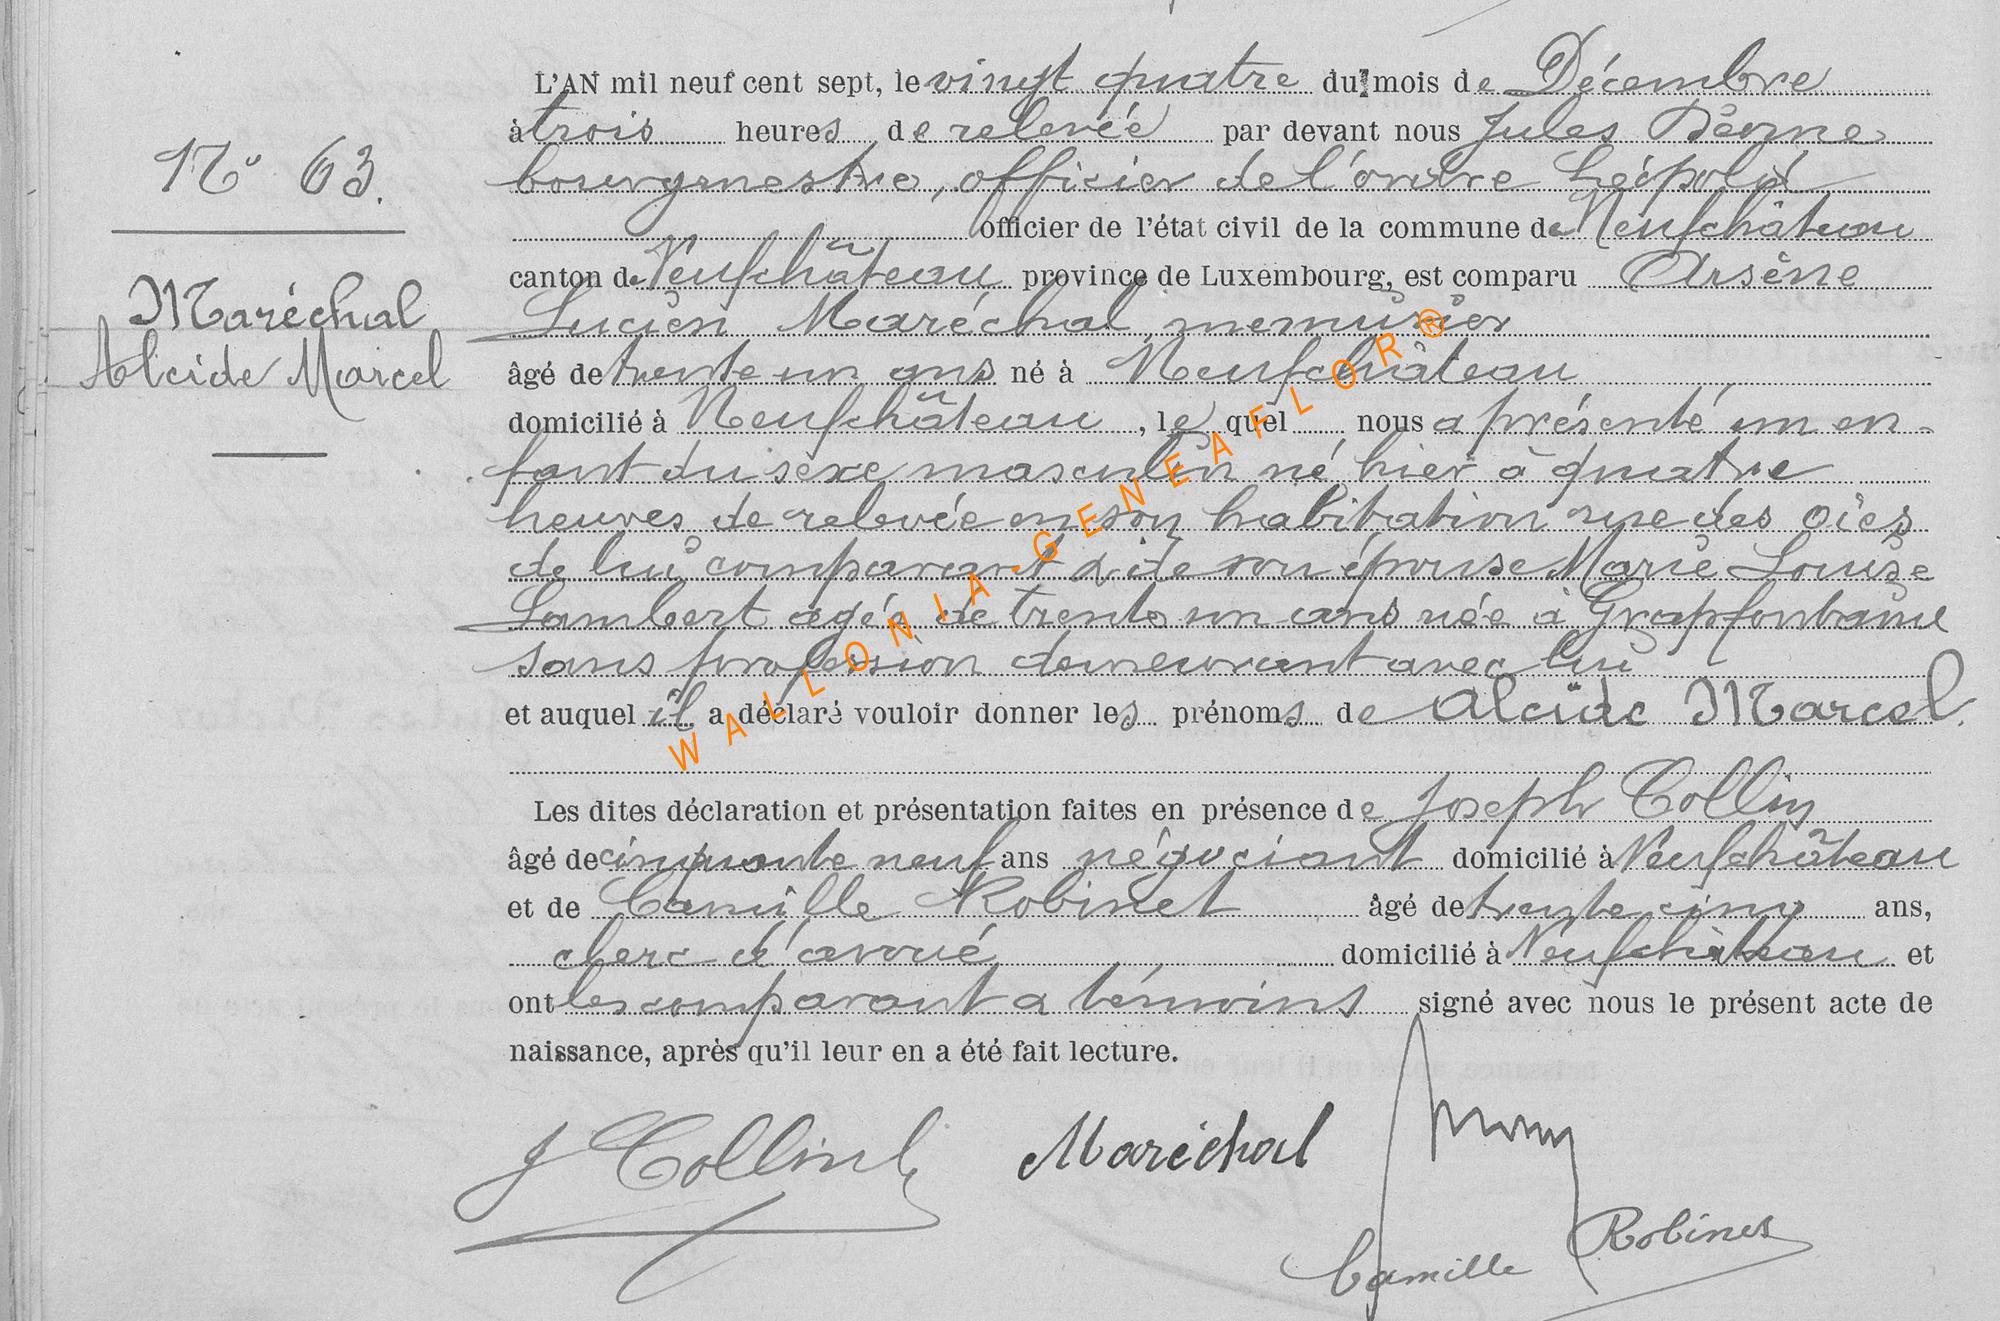 L'AN mil neuf cent sept, le vingt quatre du mois de Décembre
à trois heures de relevée par devant nous Jules
bourgmestre, officier de l'ordre Léopold
officier de l'état civil de la commune de Neufchâteau
canton de Neufchâteau province de Luxembourg, est comparu Arsène
Lucien Maréchal menuisier
âgé de trente un ans né à Neufchâteau
domicilié à Neufchâteau, le quel nous a présenté un en-
fant du sexe masculin né hier à quatre
heures de relevée en son habitation rue des oies
de lui comparant & de son épouse Marie Louise
Lambert agée de trente un ans née à Grapfontaine
sans profession demeurant avec lui
et auquel il a déclaré vouloir donner les prénoms de Alcide Marcel.
Les dites déclaration et présentation faites en présence de Joseph Collin
âgé de cinquante neuf ans négociant domicilié à Neufchâteau
et de Camille Robinet âgé de trente cinq ans,
clerc d'avoué domicilié à Neufchâteau et
ont les comparant & témoins signé avec nous le présent acte de
naissance, après qu'il leur en a été fait lecture.
N° 63.
Maréchal
Alcide Marcel
J Collin Maréchal
Camille Robinet
WALLONIA - GENEAFLOR®